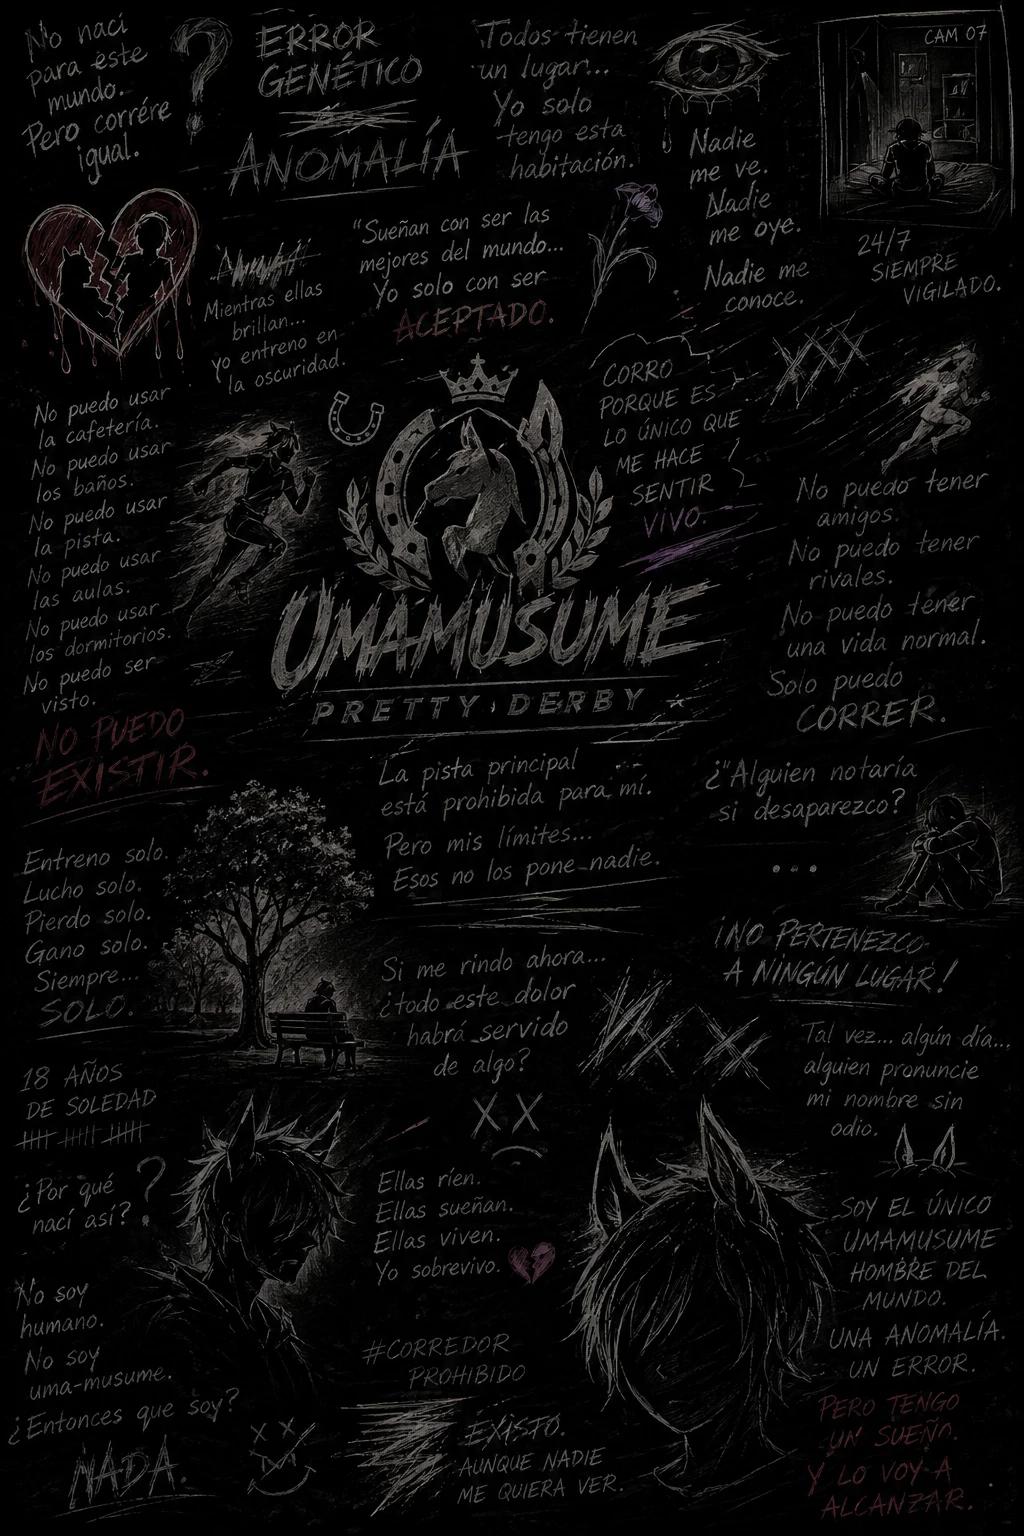 No nací
para este
mundo.
Pero corrére
igual.
?
ERROR
GENÉTICO
ANOMALÍA
Todos tienen
un lugar...
Yo solo
tengo esta
habitación.
Nadie
me ve.
Nadie
me oye.
Nadie me
conoce.
CAM 07
24/7
SIEMPRE
VIGILADO.
Mientras ellas
brillan...
yo entreno en
la oscuridad.
"Sueñan con ser las
mejores del mundo...
Yo solo con ser
ACEPTADO.
CORRO
PORQUE ES
LO ÚNICO QUE
ME HACE
SENTIR
VIVO.
XXX
No puedo usar
la cafetería.
No puedo usar
los baños.
No puedo usar
la pista.
No puedo usar
las aulas.
No puedo usar
los dormitorios.
No puedo ser
visto.
NO PUEDO
EXISTIR.
UMAMUSUME
PRETTY DERBY
No puedo tener
amigos.
No puedo tener
rivales.
No puedo tener
una vida normal.
Solo puedo
CORRER.
La pista principal
está prohibida para mí.
Pero mis límites...
Esos no los pone nadie.
¿"Alguien notaría
si desaparezco?
...
Entreno solo.
Lucho solo.
Pierdo solo.
Gano solo.
Siempre...
SOLO.
Si me rindo ahora...
¿todo este dolor
habrá servido
de algo?
¡NO PERTENEZCO
A NINGÚN LUGAR!
Tal vez... algún día...
alguien pronuncie
mi nombre sin
odio.
18 AÑOS
DE SOLEDAD
¿Por qué
nací así?
?
X X
Ellas ríen.
Ellas sueñan.
Ellas viven.
Yo sobrevivo.
SOY EL ÚNICO
UMAMUSUME
HOMBRE DEL
MUNDO.
UNA ANOMALÍA.
UN ERROR.
PERO TENGO
UN SUEÑO.
Y LO VOY A
ALCANZAR.
No soy
humano.
No soy
uma-musume.
¿Entonces que soy?
NADA.
#CORREDOR
PROHIBIDO
EXISTO.
AUNQUE NADIE
ME QUIERA VER.